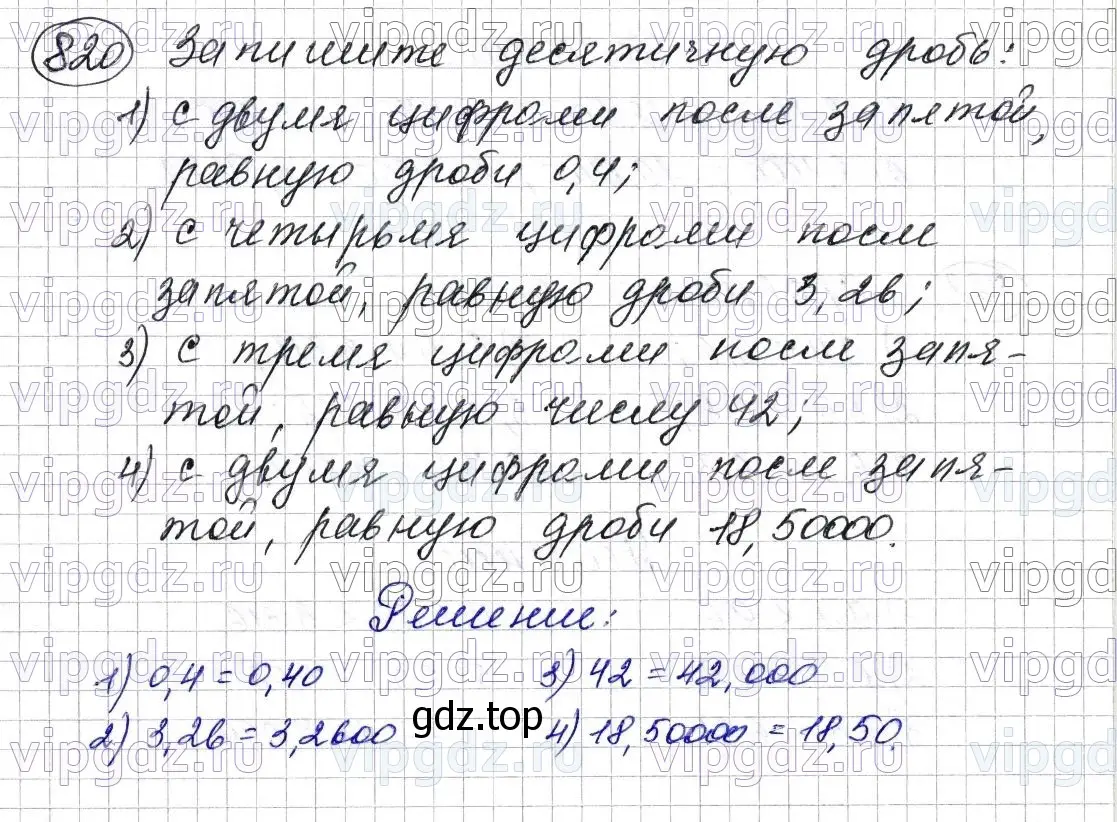 820 Запишите десятичную дробь:
1) с двумя цифрами после запятой,
равную дроби 0,4;
2) с четырьмя цифрами после
запятой, равную дроби 3,26;
3) с тремя цифрами после запя-
той, равную числу 42;
4) с двумя цифрами после запя-
той, равную дроби 18,50000.
Решение:
1) 0,4 = 0,40
3) 42 = 42,000
2) 3,26 = 3,2600
4) 18,50000 = 18,50.
gdz.top
vipgdz.ru